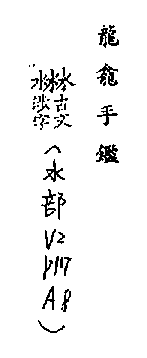 龍龕手鑑
古文
涉字
(水部 V2 P117 A8)